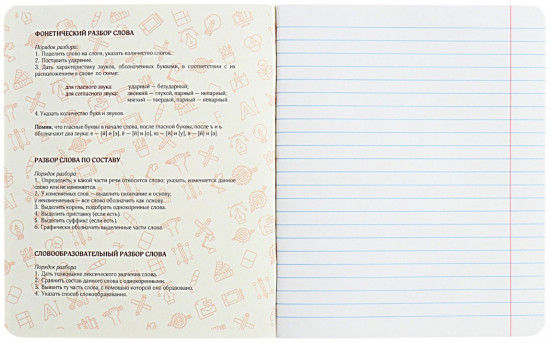 ФОНЕТИЧЕСКИЙ РАЗБОР СЛОВА
Порядок разбора:
1. Поделить слово на слоги, указать количество слогов.
2. Поставить ударение.
3. Дать характеристику звуков, обозначенных буквами, в соответствии с их
расположением в слове по схеме:
для гласного звука: ударный – безударный;
для согласного звука: звонкий – глухой, парный – непарный,
мягкий – твердый, парный – непарный.
4. Указать количество букв и звуков.
Помни, что гласные буквы в начале слова, после гласной буквы, после ъ и ь
обозначают два звука: е – [й] и [э], ё – [й] и [о], ю – [й] и [у], я – [й] и [а].
РАЗБОР СЛОВА ПО СОСТАВУ
Порядок разбора
1. Определить, к какой части речи относится слово; указать, изменяется данное
слово или не изменяется.
2. У изменяемых слов – выделить окончание и основу;
у неизменяемых – все слово обозначить как основу.
3. Выделить корень, подобрать однокоренные слова.
4. Выделить приставку (если есть).
5. Выделить суффикс (если есть).
6. Графически обозначить выделенные части слова.
СЛОВООБРАЗОВАТЕЛЬНЫЙ РАЗБОР СЛОВА
Порядок разбора
1. Дать толкование лексического значения слова.
2. Сравнить состав данного слова с однокоренными.
3. Выявить ту часть слова, с помощью которой оно образовано.
4. Указать способ словообразования.